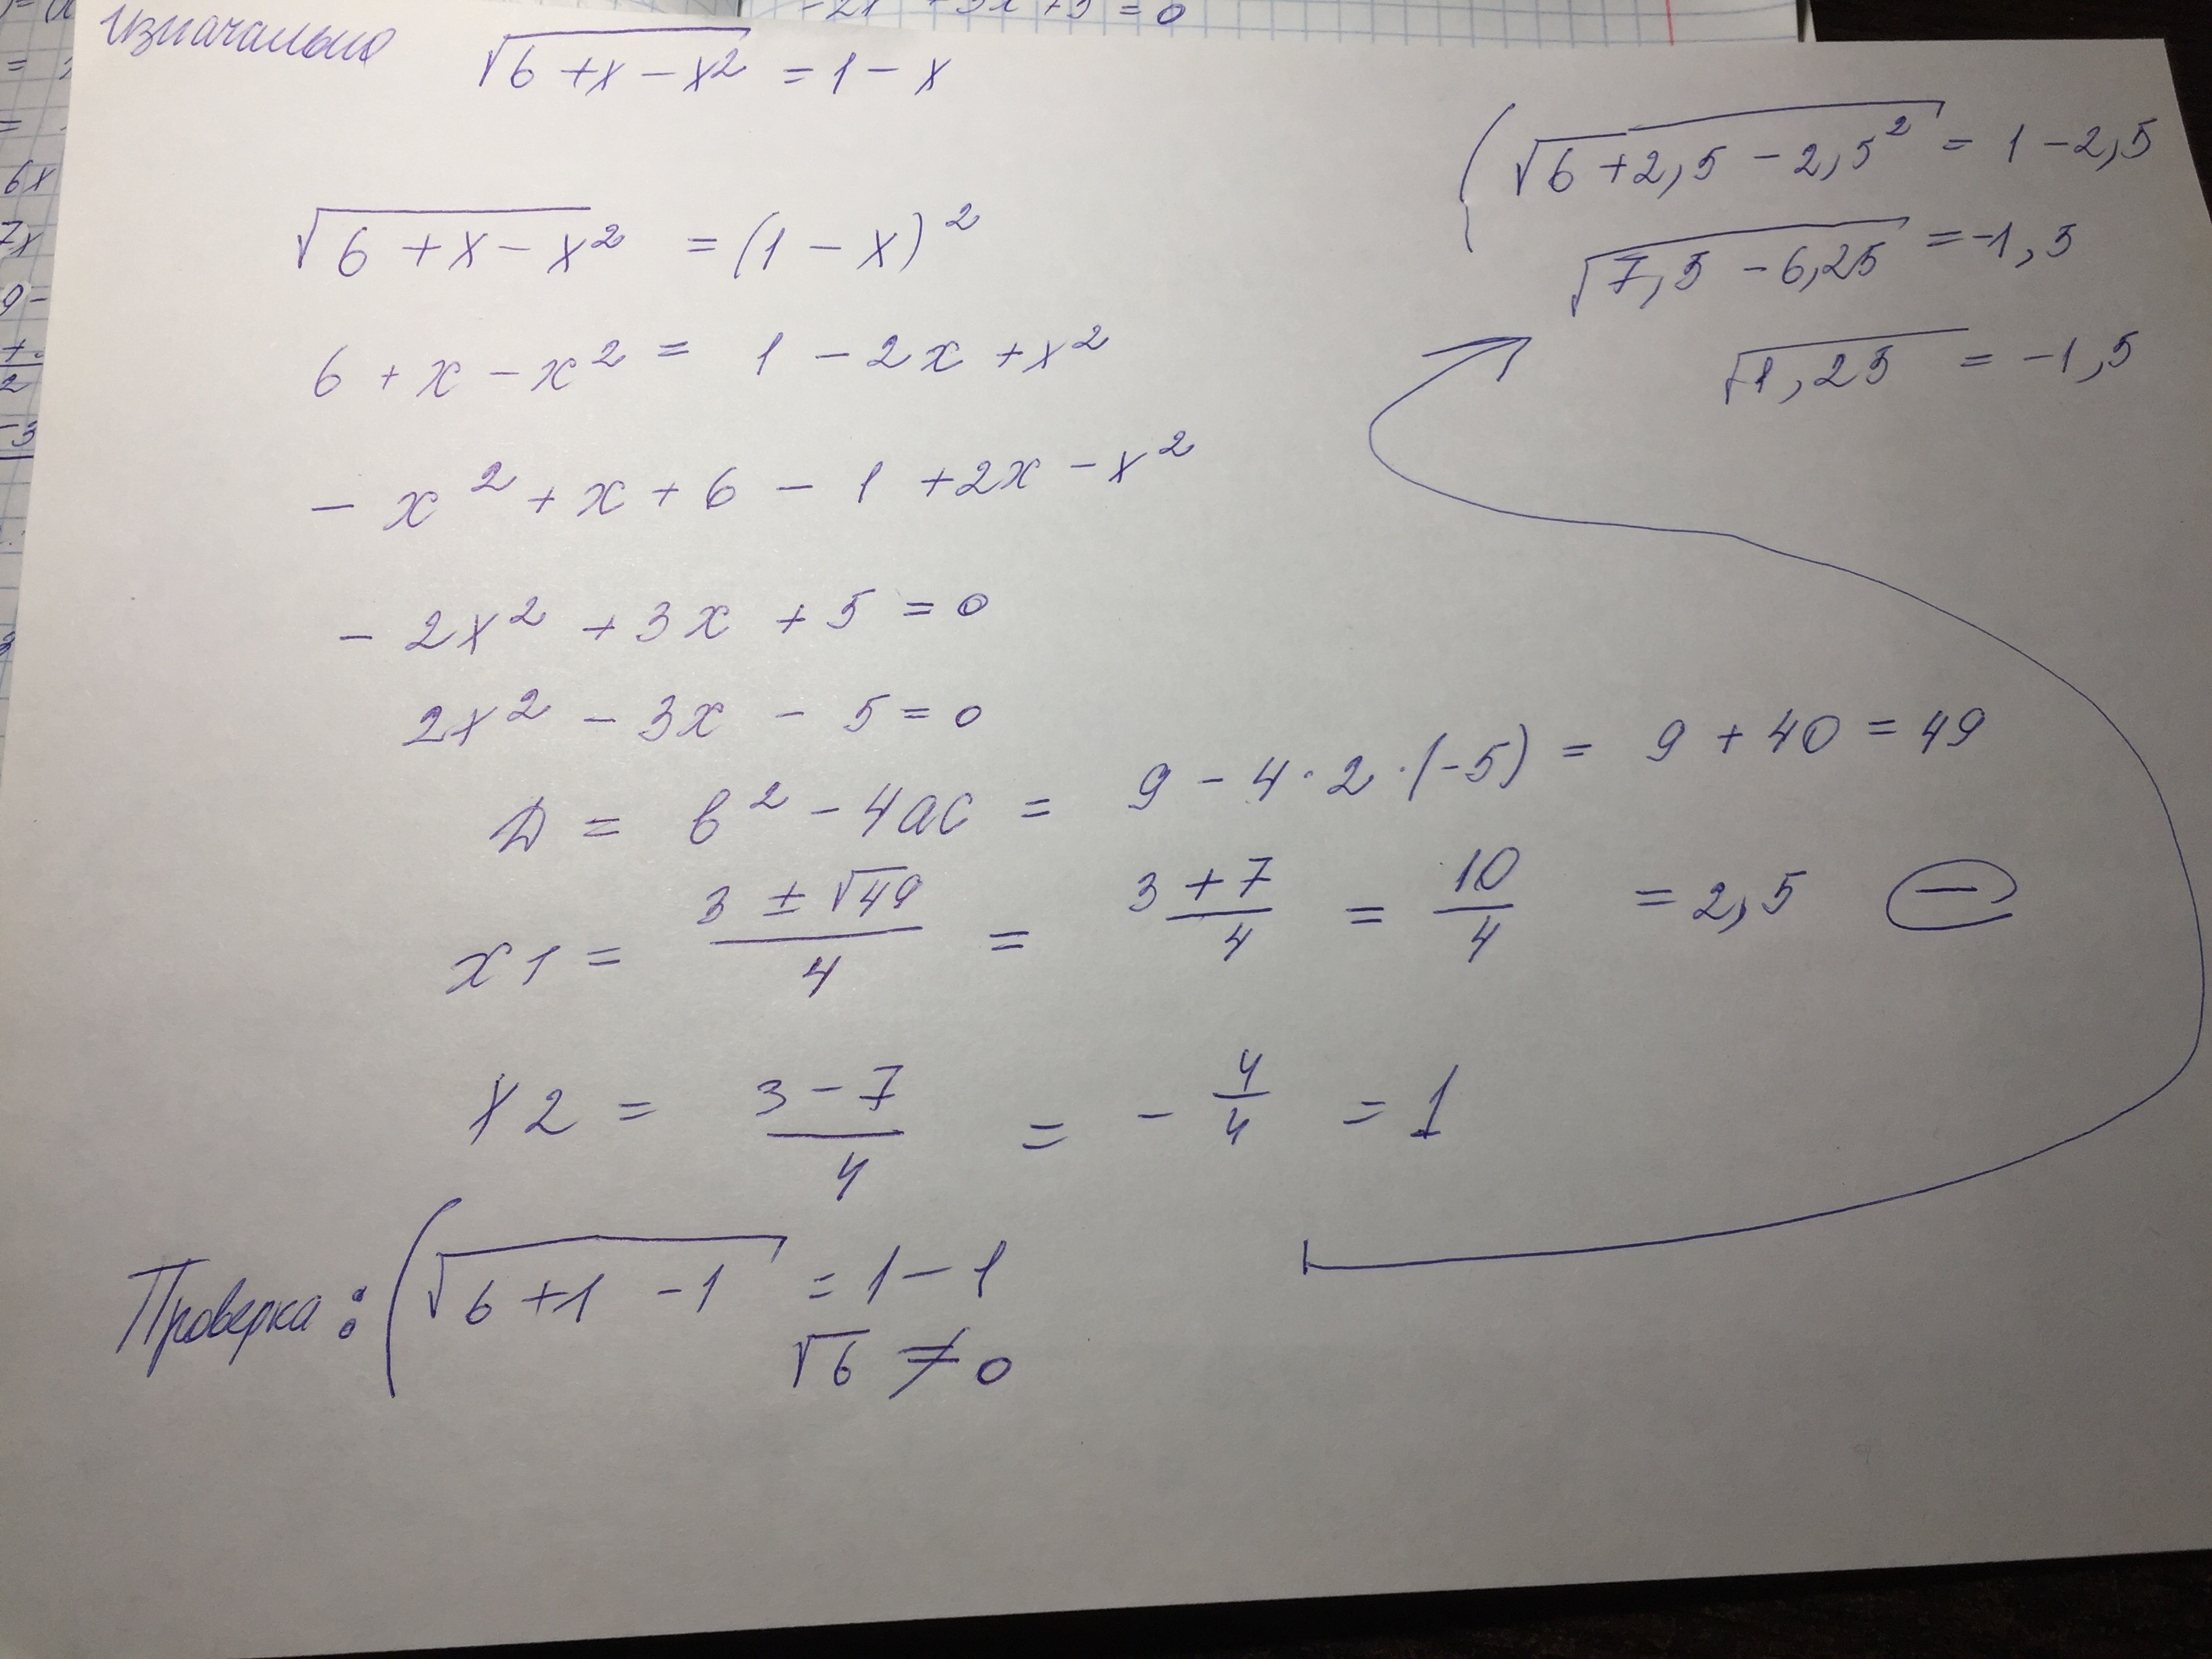 -2x² + 3x + 5 = 0
6x
7x
9-
-3
изначально √(6 + x - x²) = 1 - x
√(6 + x - x²) = (1 - x)²
6 + x - x² = 1 - 2x + x²
- x² + x + 6 - 1 + 2x - x²
- 2x² + 3x + 5 = 0
2x² - 3x - 5 = 0
D = b² - 4ac = 9 - 4 · 2 · (-5) = 9 + 40 = 49
x1 = (3 ± √49)/4 = (3 + 7)/4 = 10/4 = 2,5 (-)
x2 = (3 - 7)/4 = - 4/4 = 1
Проверка: ( √(6 + 1 - 1) = 1 - 1
√6 ≠ 0
( √(6 + 2,5 - 2,5²) = 1 - 2,5
√(7,5 - 6,25) = -1,5
√1,25 = -1,5